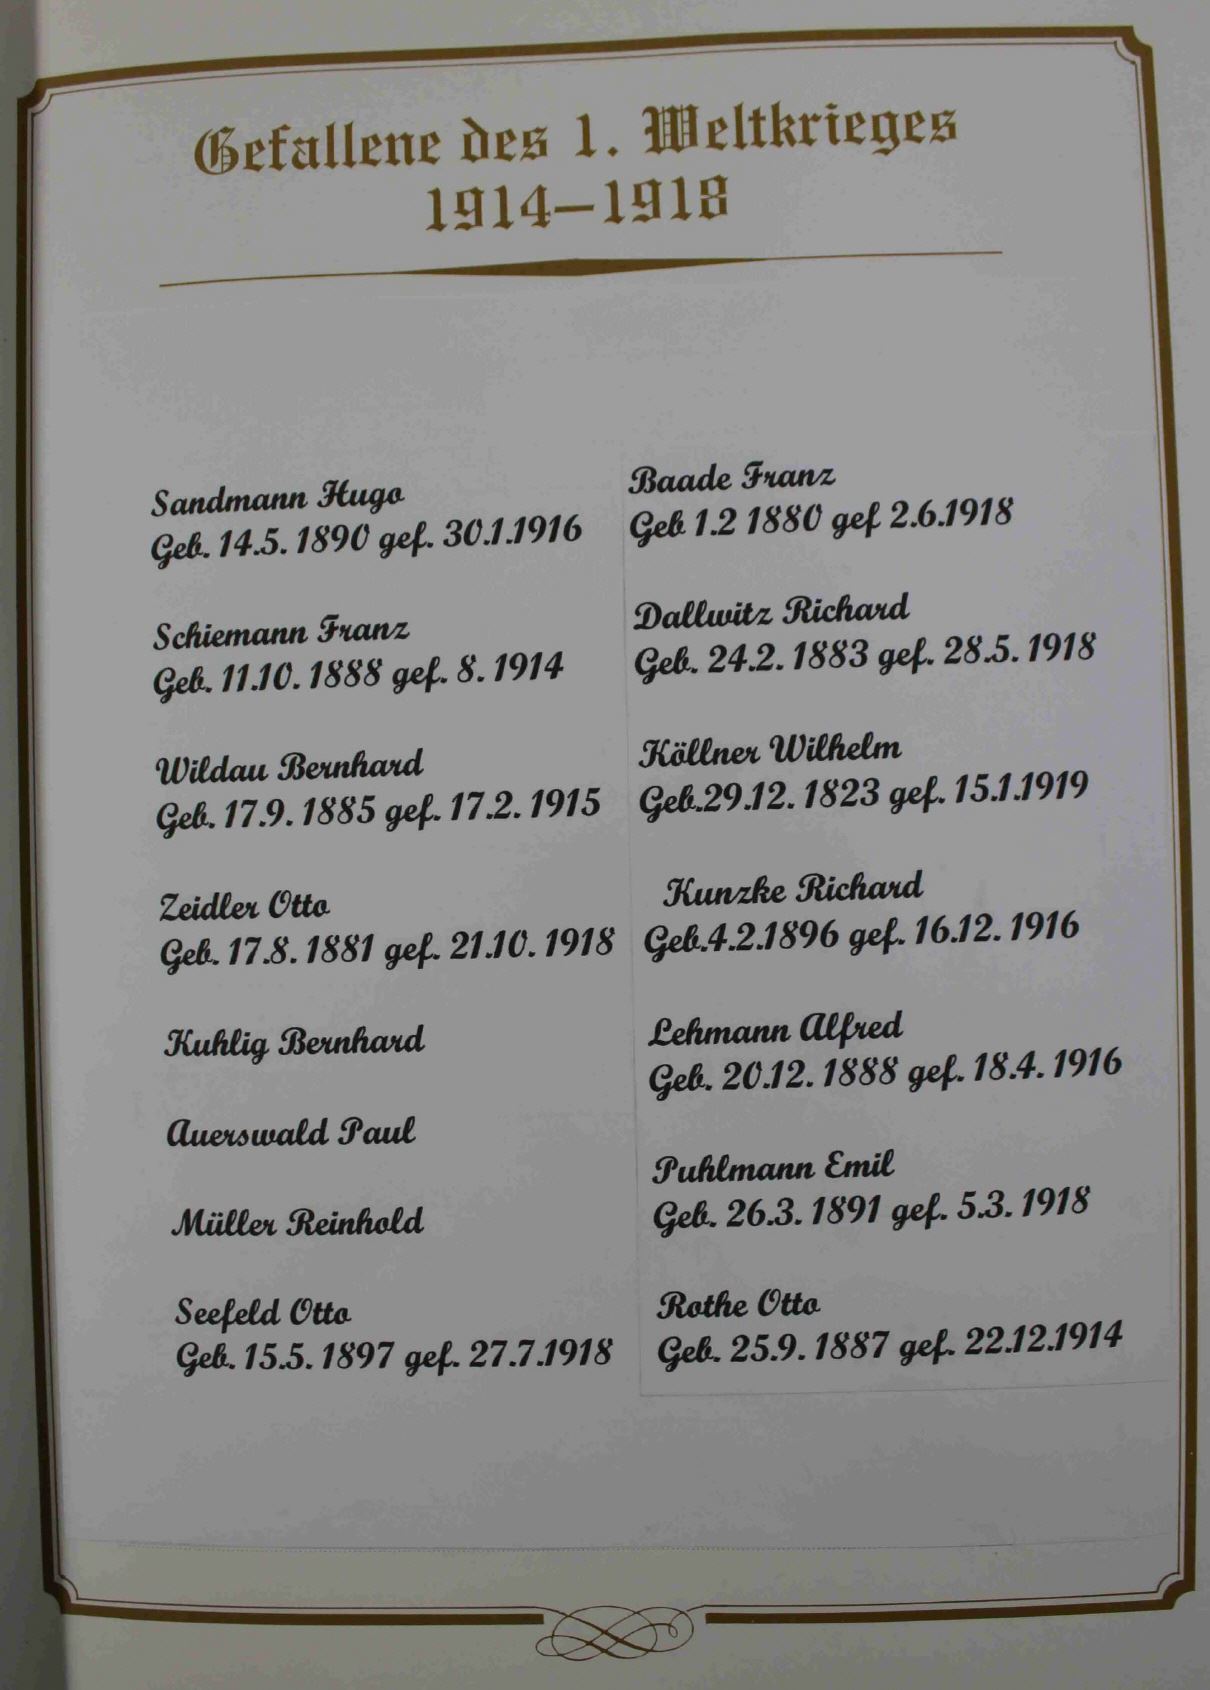 Gefallene des 1. Weltkrieges
1914–1918
Sandmann Hugo
Geb. 14.5. 1890 gef. 30.1.1916
Schiemann Franz
Geb. 11.10. 1888 gef. 8. 1914
Wildau Bernhard
Geb. 17.9. 1885 gef. 17.2. 1915
Zeidler Otto
Geb. 17.8. 1881 gef. 21.10. 1918
Kuhlig Bernhard
Auerswald Paul
Müller Reinhold
Seefeld Otto
Geb. 15.5. 1897 gef. 27.7.1918
Baade Franz
Geb 1.2 1880 gef 2.6.1918
Dallwitz Richard
Geb. 24.2. 1883 gef. 28.5. 1918
Köllner Wilhelm
Geb.29.12. 1823 gef. 15.1.1919
Kunzke Richard
Geb.4.2.1896 gef. 16.12. 1916
Lehmann Alfred
Geb. 20.12. 1888 gef. 18.4. 1916
Puhlmann Emil
Geb. 26.3. 1891 gef. 5.3. 1918
Rothe Otto
Geb. 25.9. 1887 gef. 22.12.1914